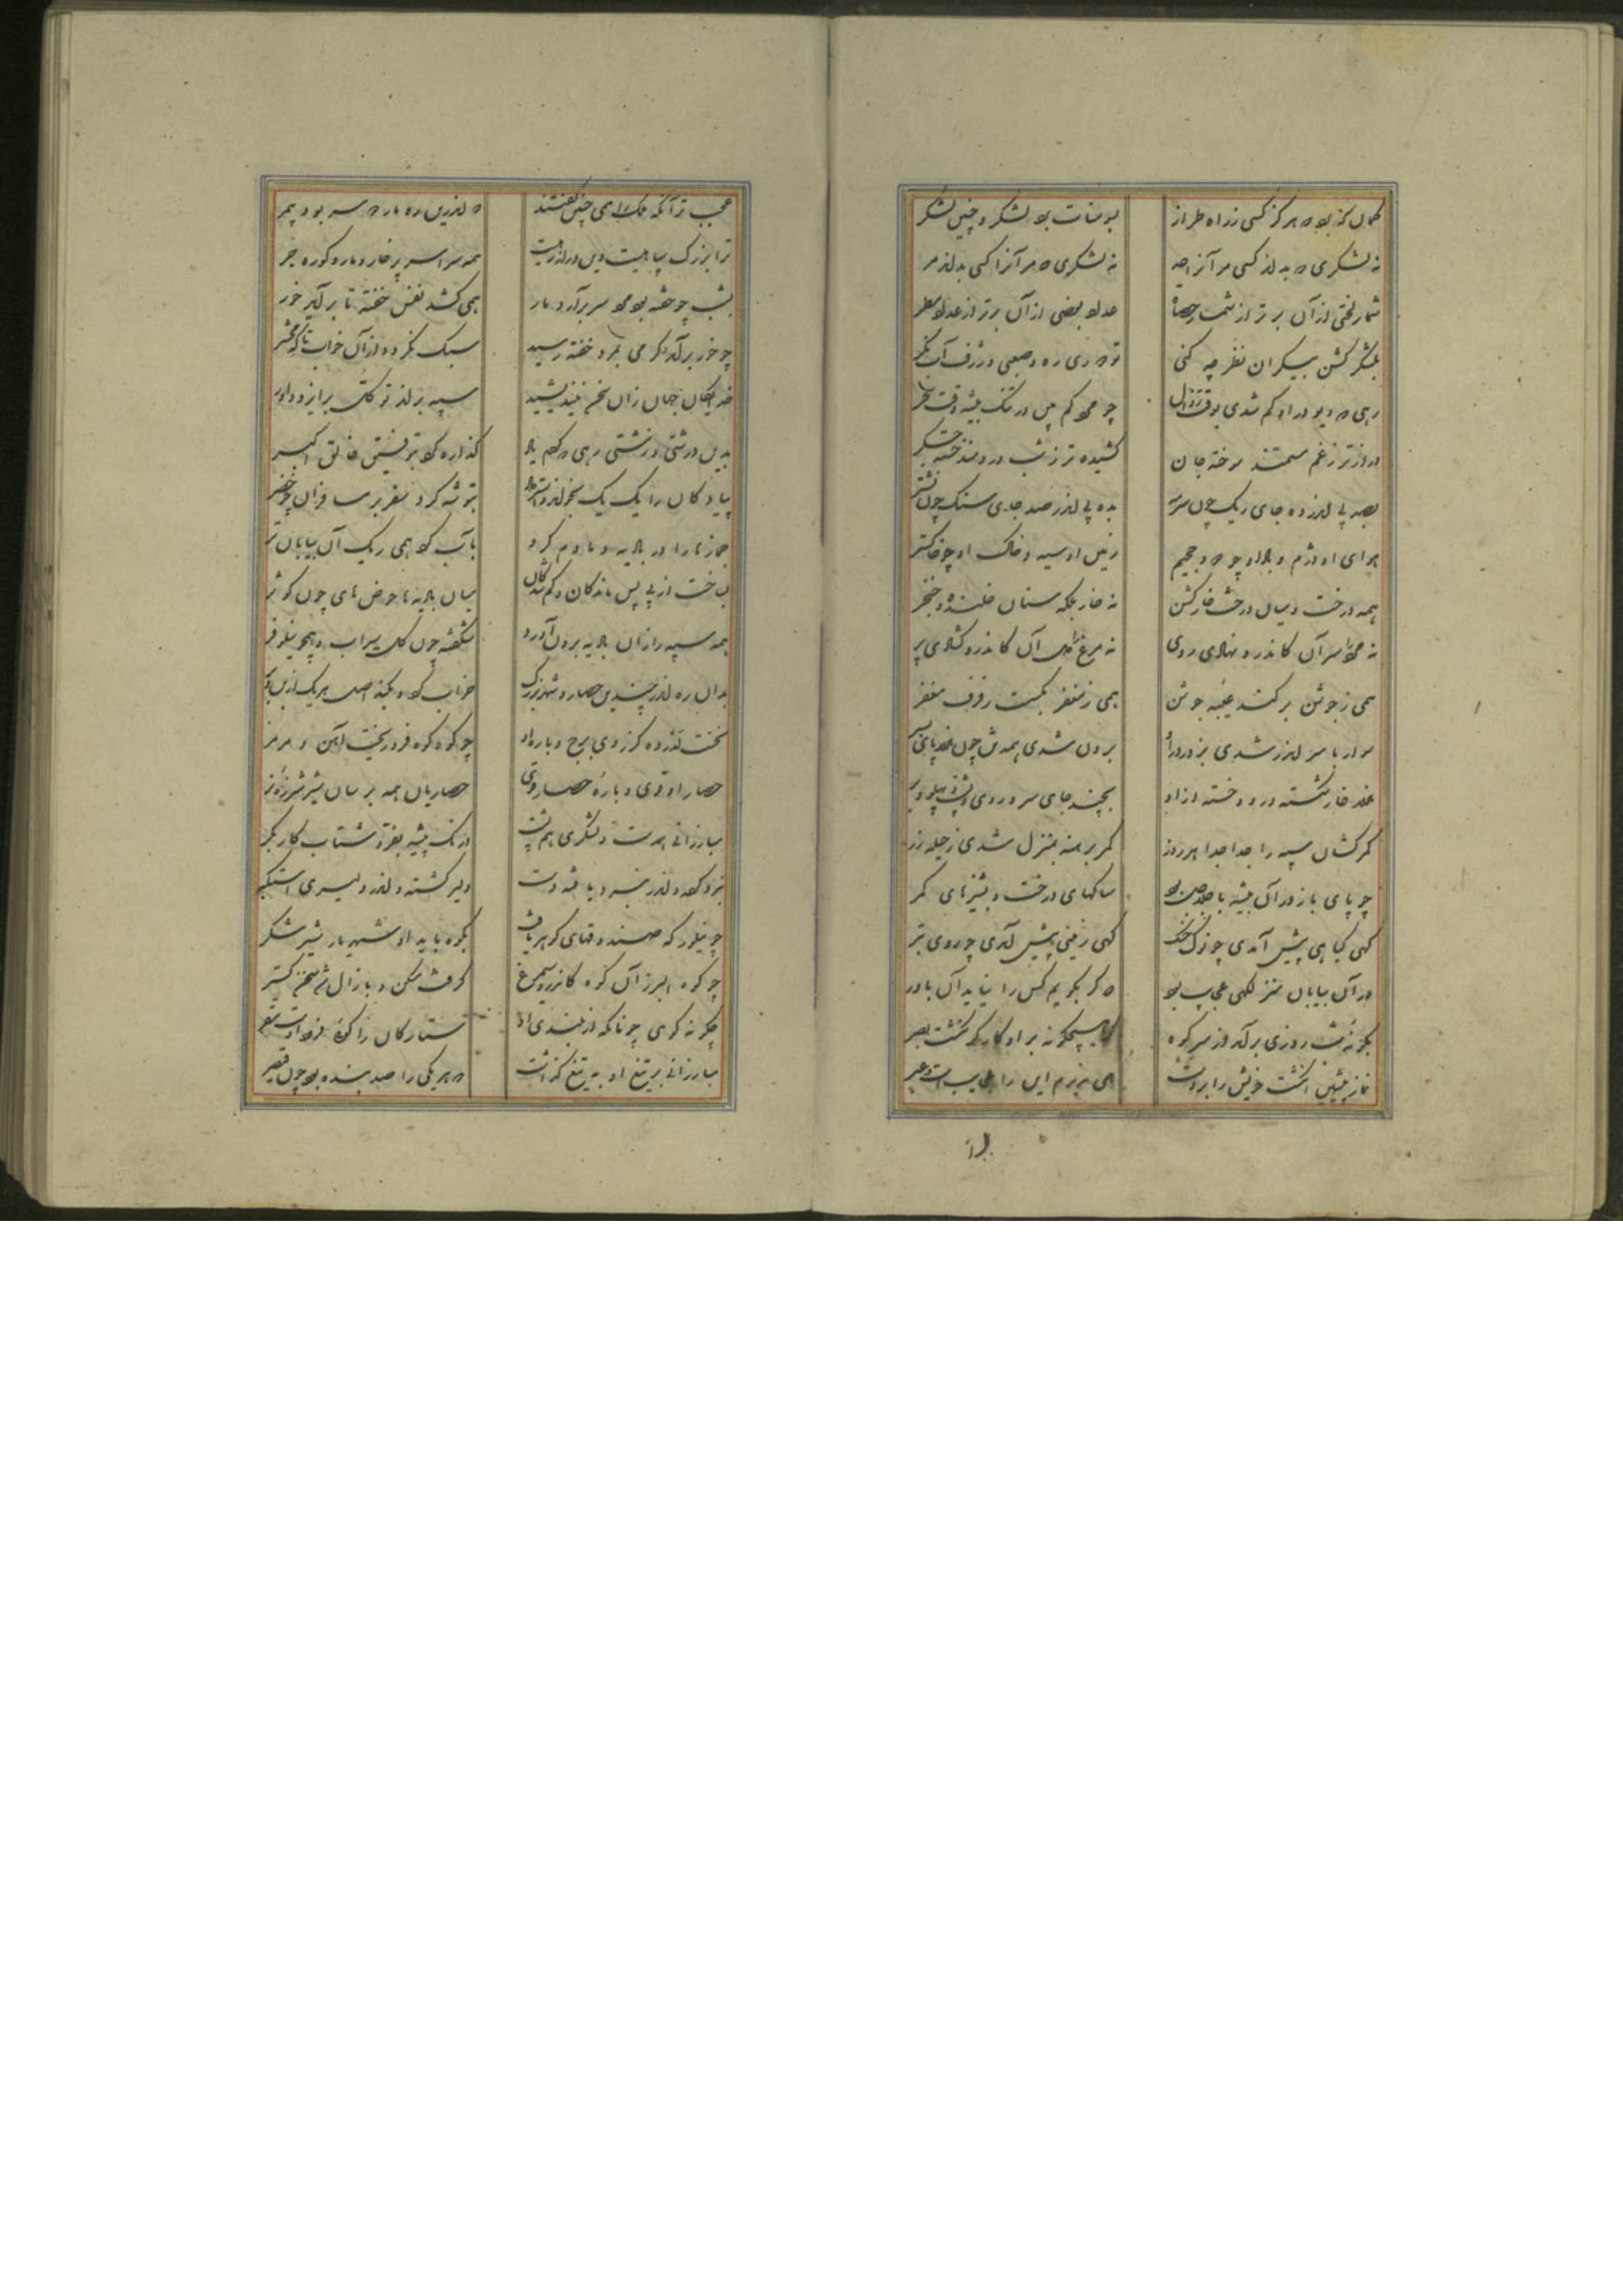 گمان که برد که هرگز کسی ز راه طراز بسومنات برد لشکر و چنین لشکر
نه لشکری که بداند کسی مر آنرا حد نه لشکری که مر آنرا کسی بداند مر
شمار لختی از آن برتر از شمار حصاة عداد بعضی از آن برتر از عداد مطر
بلشکر گشن بیکران نظر چه کنی تو دوری ره و صعبی و ژرف آب نگر
رهی که دیو در او گم شدی بوقت زوال چو مرد کم بین در تنگ بیشه وقت سحر
درازتر ز غم مستمند سوخته جان کشیده تر ز شب دردمند خسته جگر
بصد پی اندر ده جای ریک چون سرمه بده پی اندر صد جای سنک چون نشتر
هوای او دژم و باد او چو دود جحیم زمین او سیه و خاک او چو خاکستر
همه درخت و میان درخت خار گشن نه خار بلکه سنان خلنده و خنجر
نه مرد را سر آن کاندرو نهادی روی نه مرغ را دل آن کاندرو گشادی پر
همی ز جوشن برکند غیبه جوشن همی ز مغفر بگسست رفرف مغفر
سوار با سر اندر شدی بدو در و از او برون شدی همه تن چون هزار پای بسر
هزار خار شکسته درو و خسته از او بچند جای سر و روی و پشت و پهلو و بر
کمرکشان سپه را جدا جدا هر روز کمر برهنه بمنزل شدی ز حیله زر
چو پای باز در آن بیشه با جلاجل بود ستاکهای درخت و پشیزهای کمر
گهی گیاهی پیش آمدی چو نوک خدنک گهی زمینی پیش آمدی چو روی تبر
در آن بیابان منزلگهی عجایب بود که گر بگویم کس را نیاید آن باور
بگونه شب روزی برآمد از سر کوه که هیچگونه بر او کارگر نگشت بصر
نماز پیشین انگشت خویش را بر دست همی ندیدم این را عجایب است و عبر
عجب تر آنکه ملک را همی چنین گفتند که اندرین ره مار دو سر بود بیمر
ترا بزرگ سپاهیست وین دراز رهیست همه سراسر پر خار و مار و کوره و جر
بشب چو خفته بود مرد سر برآرد مار همی کشد نفس خفته تا برآید خور
چو خور برآید و گرمی بمرد خفته رسید سبک نگردد از آن خواب تا گه محشر
خدایگان جهان زان سخن نیندیشید سپه براند توکل بر ایزد داور
بدین درشتی و زشتی رهی که کردم یاد گذاره کرد بتوفیق خالق اکبر
پیادگان را یک یک بخواند و اشتر داد بتوشه کرد سفر بر مسافران چو حضر
جمازها را در بادیه دمادم کرد بآب کرد همی ریک آن بیابان تر
بساخت از پی پس ماندگان و گمشدگان میان بادیه ها حوض های چون کوثر
همه سپه را زان بادیه برون آورد شکفته چون گل سیراب و همچو نیلوفر
بدان ره اندر چندین حصار و شهر بزرگ خراب کرد و بکند اصل هر یک از بن و بر
نخست لدروه کز روی برج و باره او چو کوه کوه فرو ریخت آهن و مرمر
حصار او قوی و باره حصار قوی حصاریان همه بر سان شیر شرزه نر
مبارزانی همدست و لشکری هم پشت درنگ پیشه بفر و شتاب کار بکر
نبرد کرده و اندر نبرد یافته دست دلیر گشته و اندر دلیری استمگر
چو چیکودر که صندوقهای گوهر یافت بکوه پایه او شهریار شیر شکر
چو کوه البرز آن کوه کاندرو سیمرغ گرفت مسکن و با زال شد سخن گستر
چگونه کوهی چونانکه از بلندی او ستارگان را گوئی فرود اوست مقر
مبارزانی بر تیغ او به تیغ گذاشت که هر یکی را صد بنده بود چون قیصر